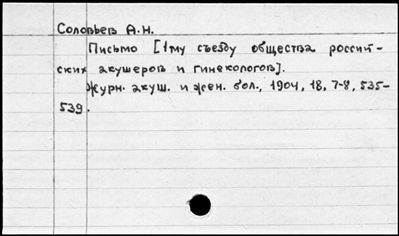 Соловьев А.Н.
Письмо [1му съезду общества россий-
ских акушеров и гинекологов].
Журн. акуш. и жен. бол., 1904, 18, 7-8, 535-
539.